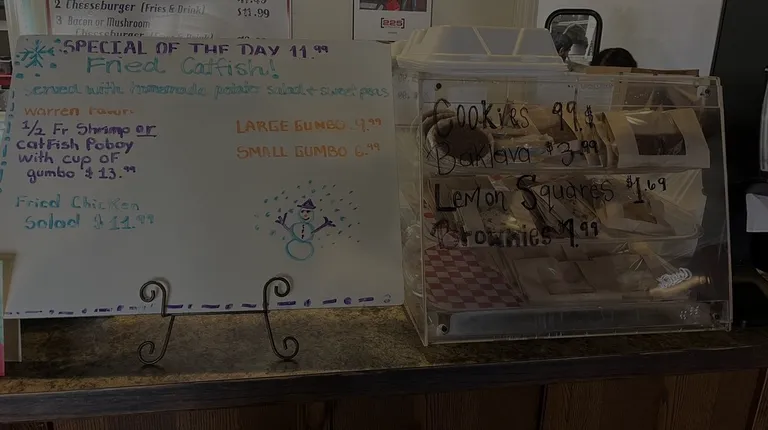 2 Cheeseburger (Fries & Drink)
$11.99
3 Bacon or Mushroom
Cheeseburger (Fries & Drink)
[225]
SPECIAL OF THE DAY 11.99
Fried Catfish!
served with homemade potato salad + sweet peas
warren
1/2 Fr Shrimp or
catfish Poboy
with cup of
gumbo $13.99
LARGE GUMBO 9.99
SMALL GUMBO 6.99
Fried Chicken
Salad $11.99
Cookies 99¢
Baklava $3.99
Lemon Squares $1.69
Brownies 1.99